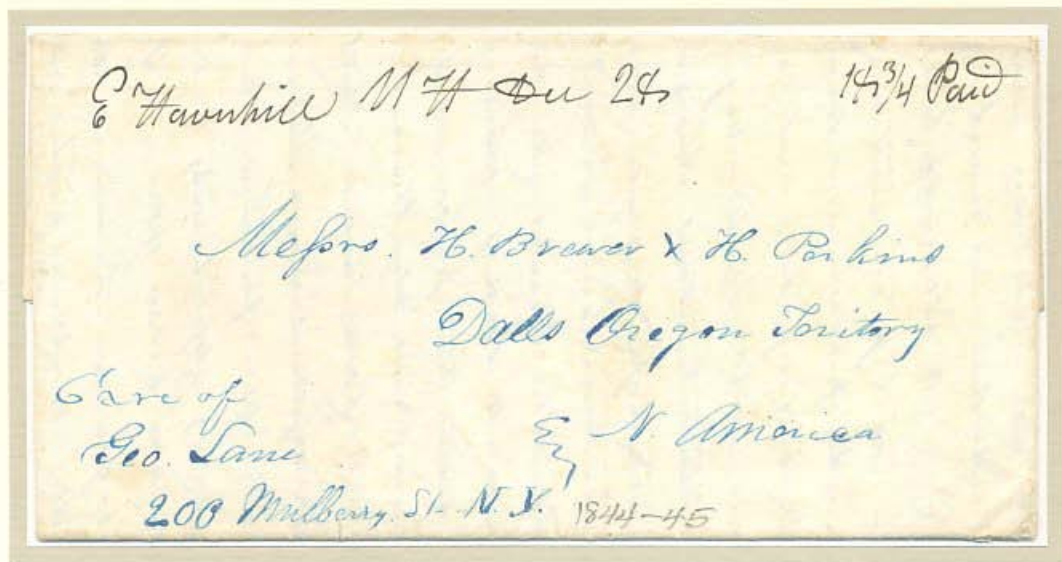 E Haverhill N H Dec 28 18 3/4 Paid
Messrs. H. Brewer & H. Perkins
Dalls Oregon Teritory
N. America
Care of
Geo. Lane
200 Mulberry. St. N.Y.
1844-45